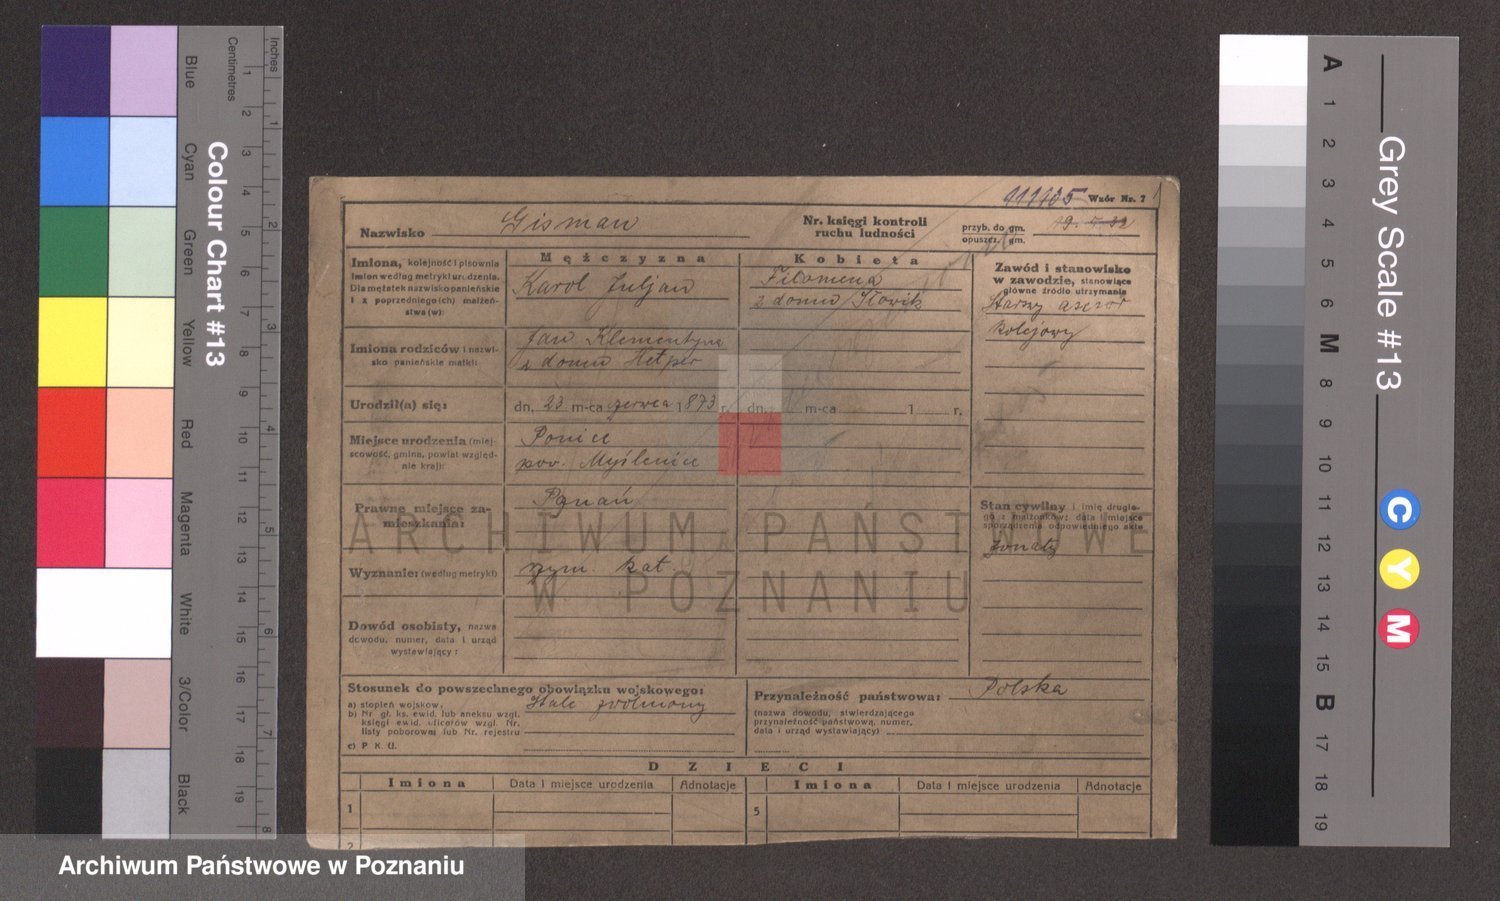 Inches
Centimetres
Colour Chart #13
Blue
Cyan
Green
Yellow
Red
Magenta
White
3/Color
Black
1 2 3 4 5 6 7 8 9 10 11 12 13 14 15 16 17 18 19
1 2 3 4 5 6 7 8
Wzór Nr. 7
Nazwisko Gisman
Nr. księgi kontroli
ruchu ludności
przyb. do gm.
opuszcz. gm.
Imiona, kolejność i pisownia
imion według metryki urodzenia.
Dla mężatek nazwisko panieńskie
i z poprzedniego(ich) małżeń-
stwa (w):
Mężczyzna
Karol Juljan
Kobieta
Filomena
z domu Słowik
Zawód i stanowisko
w zawodzie, stanowiące
główne źródło utrzymania
Starszy asesor
kolejowy
Imiona rodziców i nazwi-
sko panieńskie matki:
Jan Klementyna
z domu Hetper
Urodził(a) się:
dn. 23 m-ca czerwca 1873 r.
dn. m-ca 1 r.
Miejsce urodzenia (miej-
scowość, gmina, powiat względ-
nie kraj):
Ponice
pow. Myślenice
Prawne miejsce za-
mieszkania:
Poznań
Stan cywilny i imię drugie-
go z małżonków; data i miejsce
sporządzenia odpowiedniego aktu
żonaty
Wyznanie: (według metryki)
rzym. kat.
Dowód osobisty, nazwa
dowodu, numer, data i urząd
wystawiający:
Stosunek do powszechnego obowiązku wojskowego:
a) stopień wojskow.
b) Nr gł. ks. ewid. lub aneksu wzgl.
księgi ewid. oficerów wzgl. Nr.
listy poborowej lub Nr. rejestru
c) P. K. U.
Stale zwolniony
Przynależność państwowa: Polska
(nazwa dowodu, stwierdzającego
przynależność państwową, numer,
data i urząd wystawiający)
DZIECI
Imiona Data i miejsce urodzenia Adnotacje Imiona Data i miejsce urodzenia Adnotacje
1 5
2
ARCHIWUM PAŃSTWOWE
W POZNANIU
Archiwum Państwowe w Poznaniu
Grey Scale #13
A 1 2 3 4 5 6 M 8 9 10 11 12 13 14 15 B 17 18 19
C
Y
M